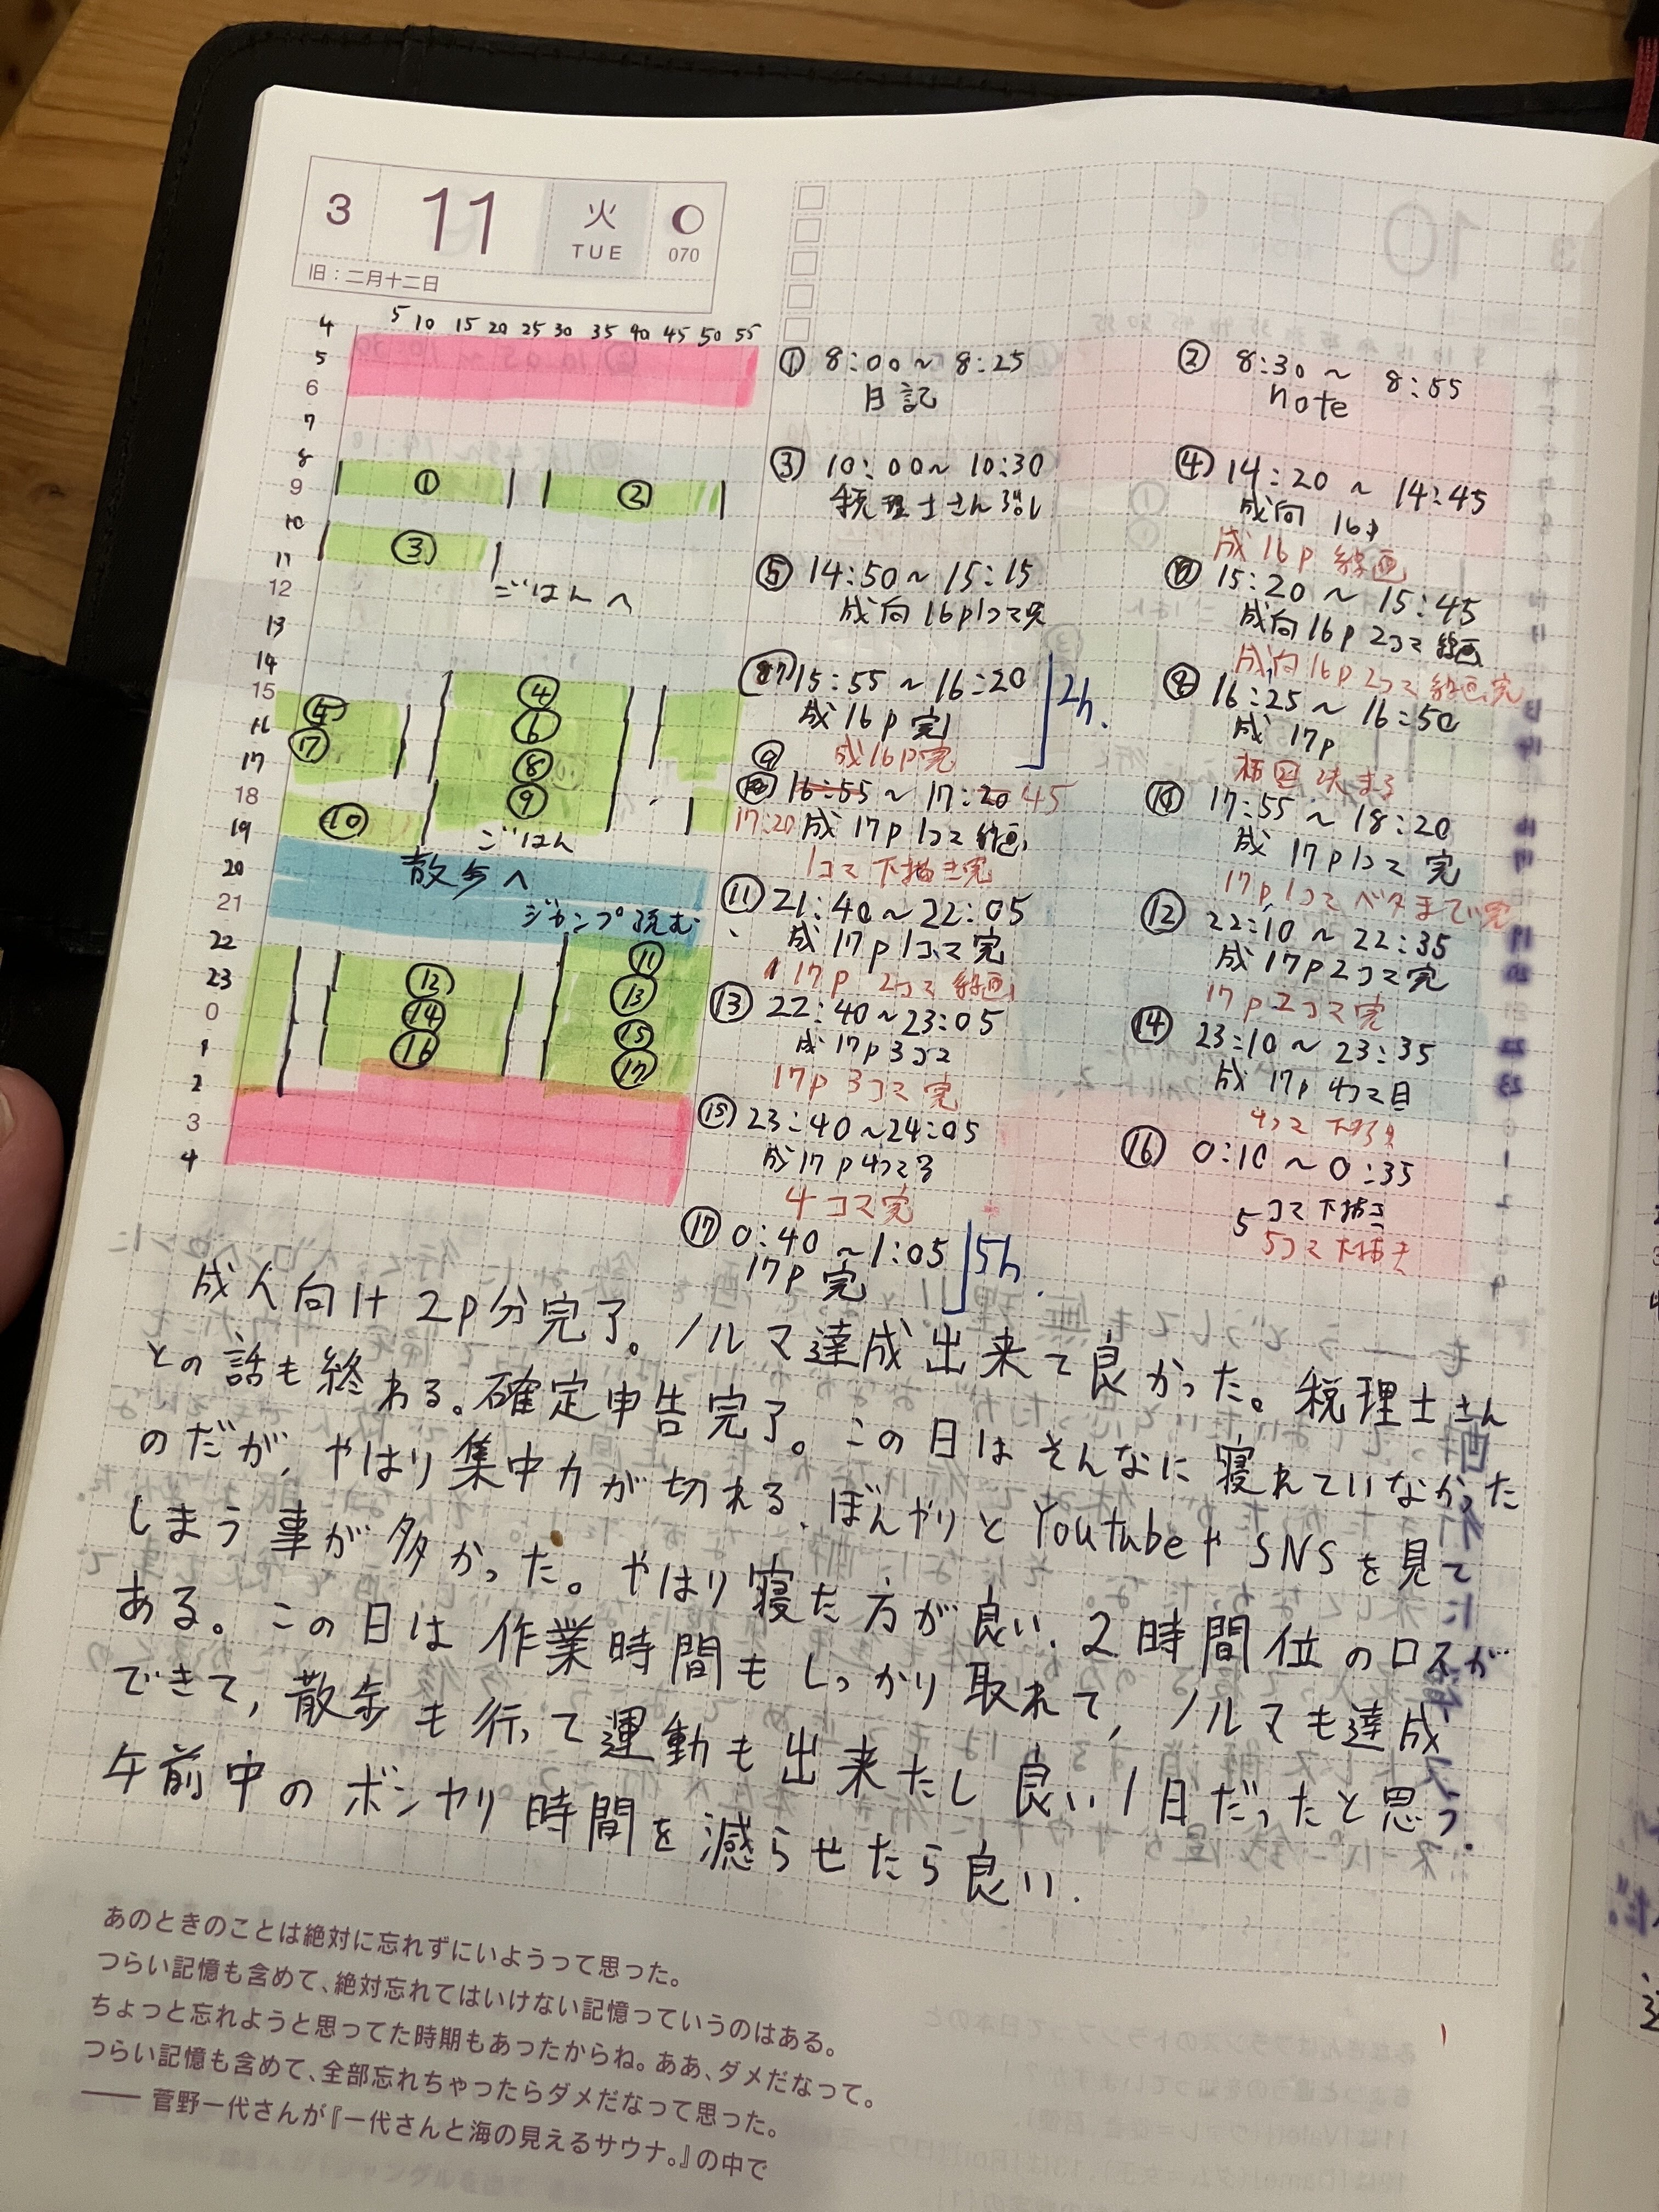 3 11 火 TUE 070
旧：二月十二日
5 10 15 20 25 30 35 40 45 50 55
4
5
6
7
8
9 ① ②
10
11 ③
12 ごはんへ
13
14
15 ⑤ ④
16 ⑦ ⑥
17 ⑧
18 ⑨
19 ⑩ ごはん
20 散歩へ
21 ジャンプ読む
22 ⑪
23 ⑫ ⑬
0 ⑭ ⑮
1 ⑯ ⑰
2
3
4
① 8:00～8:25
日記
② 8:30～8:55
note
③ 10:00～10:30
税理士さん
④ 14:20～14:45
成向 16p
成16p 線画
⑤ 14:50～15:15
成向16p1コマ完
15:20～15:45
成向16p 2コマ 線画
成向16p 2コマ 線画完
15:55～16:20
成16p 完
成16p完
2h.
⑧ 16:25～16:50
成 17p
⑨
16:55～17:20 45
17:20 成 17p 1コマ 線画
1コマ 下描き完
⑩ 17:55～18:20
成 17p1コマ 完
17p 1コマ ベタまで完
⑪ 21:40～22:05
成 17p 1コマ 完
17p 2コマ 線画
⑫ 22:10～22:35
成 17p 2コマ 完
17p 2コマ 完
⑬ 22:40～23:05
成 17p 3コマ
17p 3コマ 完
⑭ 23:10～23:35
成 17p 4コマ目
4コマ 下描き
⑮ 23:40～24:05
成17p 4コマ
4コマ完
⑯ 0:10～0:35
5コマ下描き
5コマ下描き
⑰ 0:40～1:05
17p 完
5h.
成人向け 2p分完了。ノルマ達成出来て良かった。税理士さん
との話も終わる。確定申告完了。この日はそんなに寝れていなかった
のだが、やはり集中力が切れる、ぼんやりとYoutubeやSNSを見て
しまう事が多かった。やはり寝た方が良い、2時間位のロスが
ある。この日は作業時間もしっかり取れて、ノルマも達成
できて、散歩も行って運動も出来たし良い1日だったと思う.
午前中のボンヤリ時間を減らせたら良い.
あのときのことは絶対に忘れずにいようって思った。
つらい記憶も含めて、絶対忘れてはいけない記憶っていうのはある。
ちょっと忘れようと思ってた時期もあったからね。ああ、ダメだなって。
つらい記憶も含めて、全部忘れちゃったらダメだなって思った。
―― 菅野一代さんが『一代さんと海の見えるサウナ。』の中で